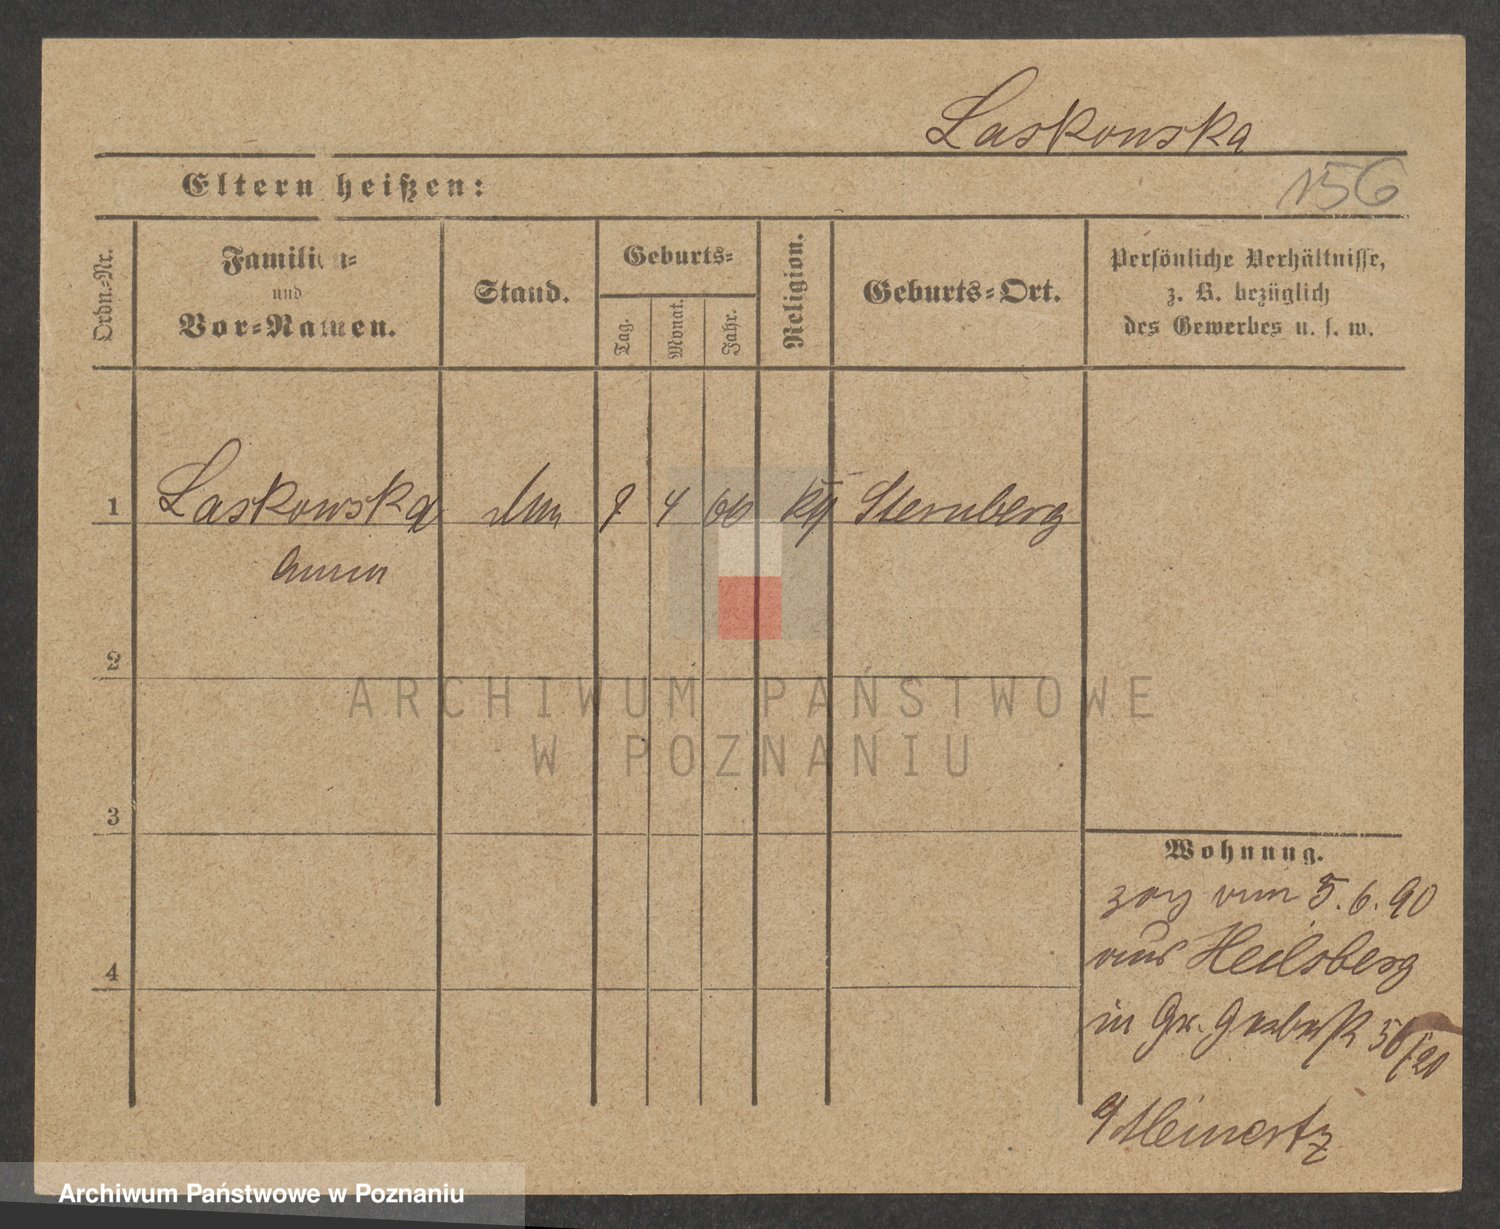 Laskowska
Eltern heißen:
156
Ordn.-Nr.
Familien-
und
Vor-Namen.
Stand.
Geburts-
Tag.
Monat.
Jahr.
Religion.
Geburts-Ort.
Persönliche Verhältnisse,
z. B. bezüglich
des Gewerbes u. s. w.
1 Laskowska 7 4 66 Sternberg
Anna
2
3
4
Wohnung.
zog am 5.6.90
aus Heilsberg
in Gr. Gerberstr 56/20
b/ Meinertz
ARCHIWUM PAŃSTWOWE
W POZNANIU
Archiwum Państwowe w Poznaniu